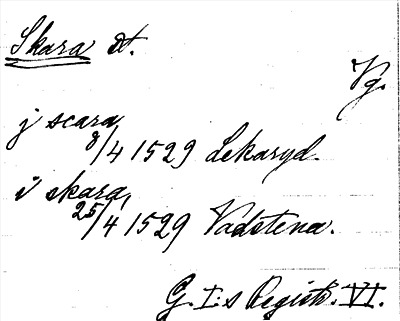 Skara st.
Vg.
j scara
8/4 1529 Lekaryd.
i skara,
25/4 1529 Vadstena.
G. I:s Registr. VI.